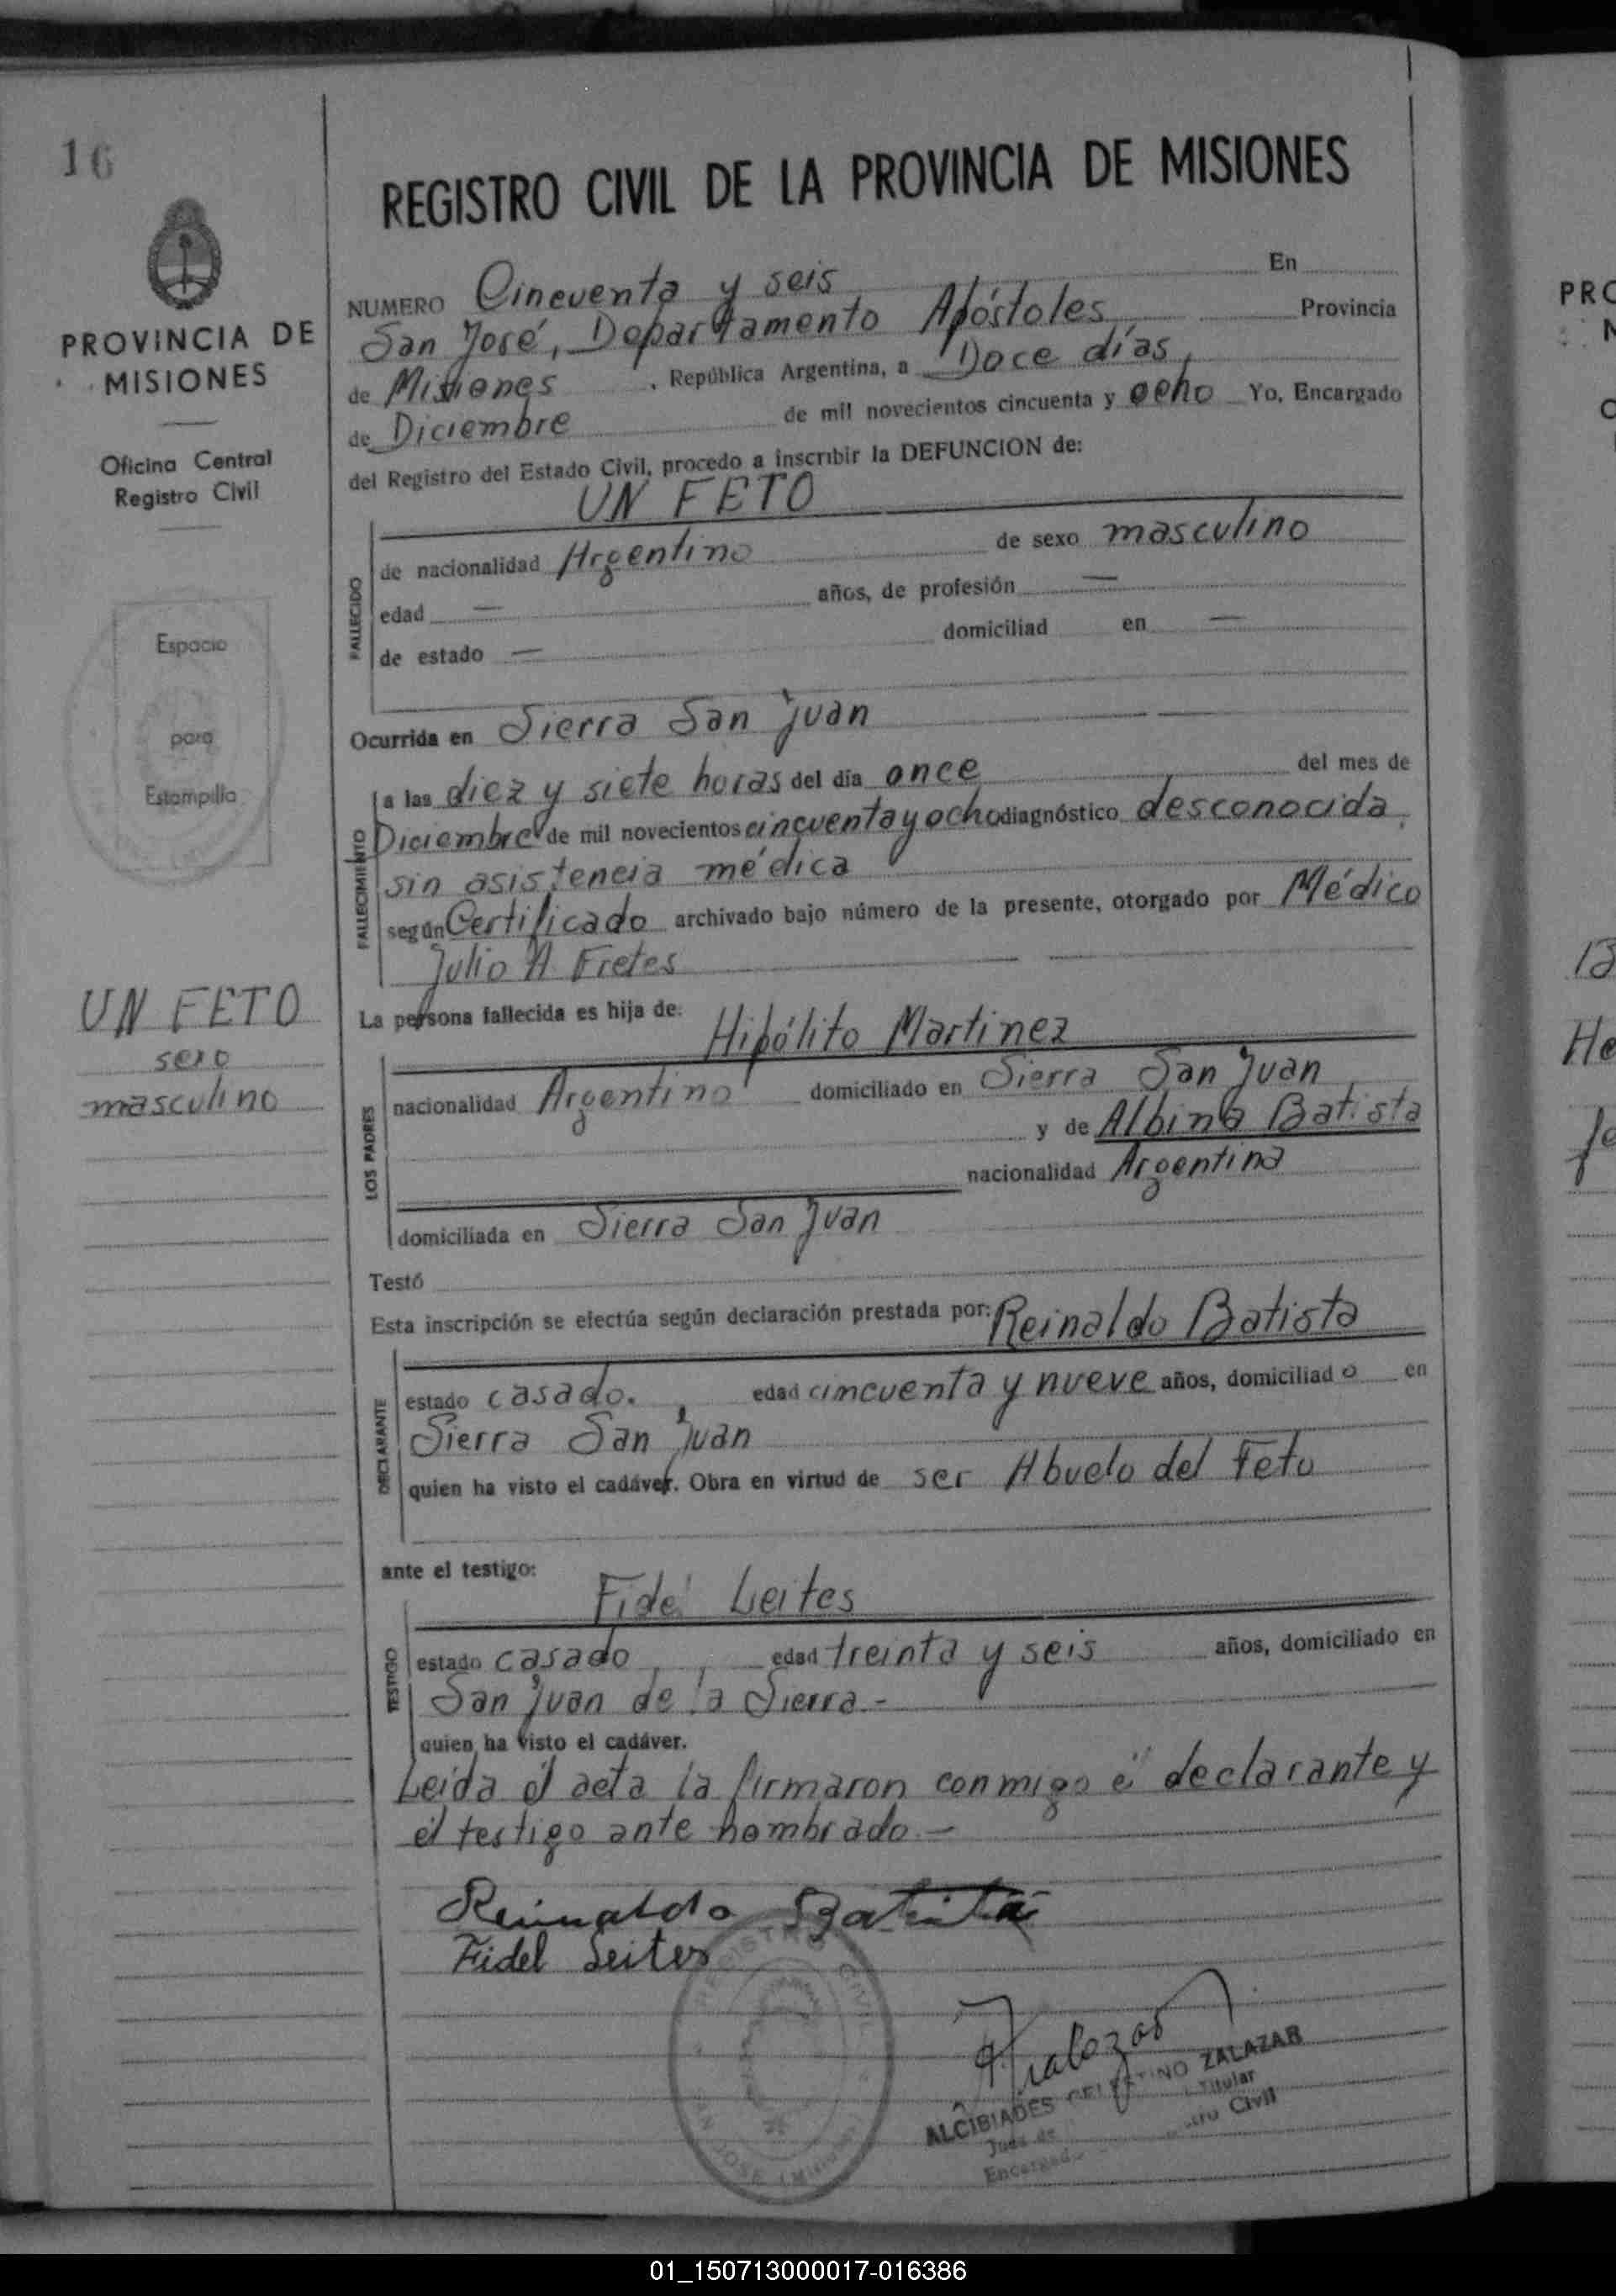 16
PROVINCIA DE
MISIONES
Oficina Central
Registro Civil
Espacio
para
Estampilla
UN FETO
sexo
masculino
REGISTRO CIVIL DE LA PROVINCIA DE MISIONES
NUMERO Cincuenta y seis En
San José, Departamento Apóstoles Provincia
de Misiones , República Argentina, a Doce días,
de Diciembre de mil novecientos cincuenta y ocho Yo, Encargado
del Registro del Estado Civil, procedo a inscribir la DEFUNCION de:
UN FETO
FALLECIDO
de nacionalidad Argentino de sexo masculino
edad — años, de profesión —
de estado — domiciliad en —
Ocurrida en Sierra San Juan
FALLECIMIENTO
a las diez y siete horas del día once del mes de
Diciembre de mil novecientos cincuenta y ocho diagnóstico desconocida,
sin asistencia médica
según Certificado archivado bajo número de la presente, otorgado por Médico
Julio A Fretes
La persona fallecida es hija de: Hipólito Martinez
LOS PADRES
nacionalidad Argentino domiciliado en Sierra San Juan
y de Albina Batista
nacionalidad Argentina
domiciliada en Sierra San Juan
Testó
Esta inscripción se efectúa según declaración prestada por: Reinaldo Batista
DECLARANTE
estado casado. edad cincuenta y nueve años, domiciliad o en
Sierra San Juan
quien ha visto el cadáver. Obra en virtud de ser Abuelo del Feto
ante el testigo:
Fidel Leites
TESTIGO
estado casado, edad treinta y seis años, domiciliado en
San Juan de la Sierra -
quien ha visto el cadáver.
Leida él acta la firmaron conmigo él declarante y
él testigo ante nombrado —
Reinaldo Batista
Fidel Leites
REGISTRO CIVIL
SAN JOSE (Misiones)
Azalazar
ALCIBIADES CELESTINO ZALAZAR
Juez de Titular
Encargado Civil
PRO
01_150713000017-016386